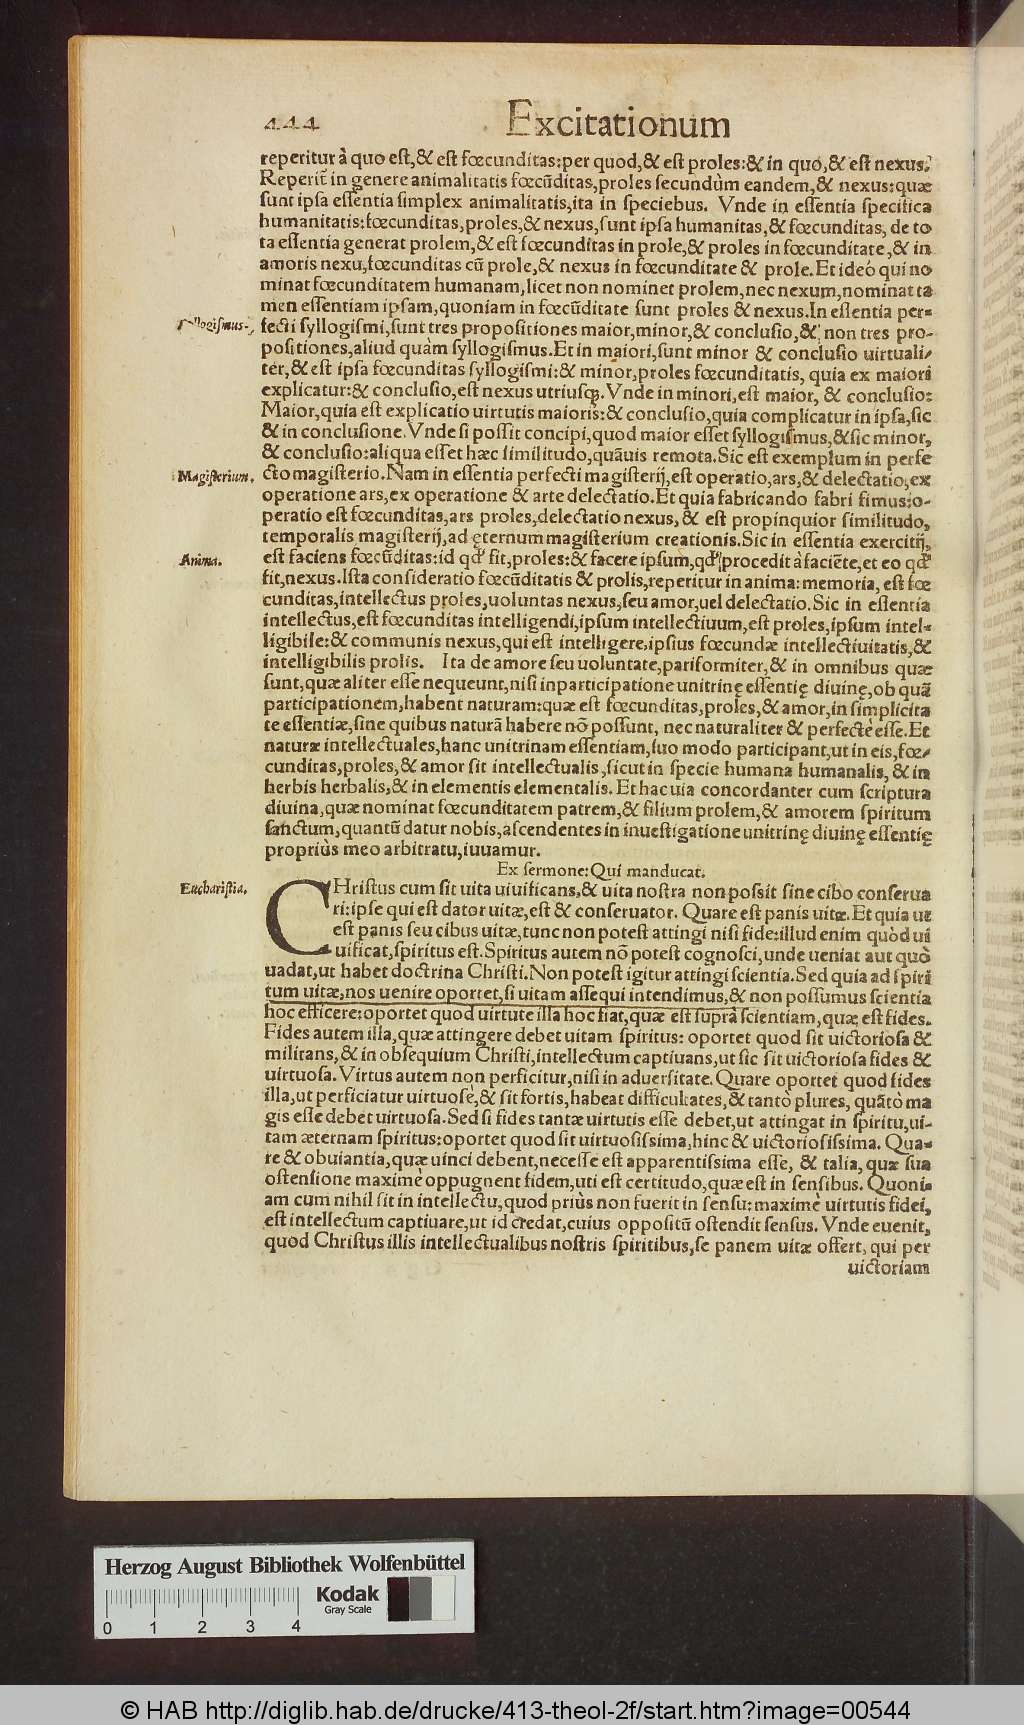 444 Excitationum
reperitur à quo est,& est fœcunditas:per quod,& est proles:& in quó,& est nexus.
Reperit̃ in genere animalitatis fœcũditas,proles secundùm eandem,& nexus:quæ
sunt ipsa essentia simplex animalitatis,ita in speciebus. Vnde in essentia specifica
humanitatis:fœcunditas,proles,& nexus,sunt ipsa humanitas,& fœcunditas, de to
ta essentia generat prolem,& est fœcunditas in prole,& proles in fœcunditate,& in
amoris nexu,fœcunditas cũ prole,& nexus in fœcunditate & prole.Et ideó qui no
minat fœcunditatem humanam,licet non nominet prolem,nec nexum,nominat ta
men essentiam ipsam,quoniam in fœcũditate sunt proles & nexus.In essentia per-
Syllogismus. fecti syllogismi,sunt tres propositiones maior,minor,& conclusio,& non tres pro-
positiones,aliud quàm syllogismus.Et in maiori,sunt minor & conclusio uirtuali-
ter,& est ipsa fœcunditas syllogismi:& minor,proles fœcunditatis, quia ex maiori
explicatur:& conclusio,est nexus utriusq;.Vnde in minori,est maior, & conclusio:
Maior,quia est explicatio uirtutis maioris:& conclusio,quia complicatur in ipsa,sic
& in conclusione.Vnde si possit concipi,quod maior esset syllogismus,& sic minor,
& conclusio:aliqua esset hæc similitudo,quãuis remota.Sic est exemplum in perfe
Magisterium. cto magisterio.Nam in essentia perfecti magisterij,est operatio,ars,& delectatio,ex
operatione ars,ex operatione & arte delectatio.Et quia fabricando fabri fimus:o-
peratio est fœcunditas,ars proles,delectatio nexus,& est propinquior similitudo,
temporalis magisterij,ad ęternum magisterium creationis.Sic in essentia exercitij,
Anima. est faciens fœcũditas:id qđ fit,proles:& facere ipsum,qđ procedit à faciẽte,et eo qđ
fit,nexus.Ista consideratio fœcũditatis & prolis,reperitur in anima:memoria, est fœ
cunditas,intellectus proles,uoluntas nexus,seu amor,uel delectatio.Sic in essentia
intellectus,est fœcunditas intelligendi,ipsum intellectiuum,est proles,ipsum intel-
ligibile:& communis nexus,qui est intelligere,ipsius fœcundæ intellectiuitatis,&
intelligibilis prolis. Ita de amore seu uoluntate,pariformiter,& in omnibus quæ
sunt,quæ aliter esse nequeunt,nisi in participatione unitrinę essentię diuinę,ob quã
participationem,habent naturam:quæ est fœcunditas,proles,& amor,in simplicita
te essentiæ,sine quibus naturã habere nõ possunt, nec naturaliter & perfectè esse.Et
naturæ intellectuales,hanc unitrinam essentiam,suo modo participant,ut in eis,fœ-
cunditas,proles,& amor sit intellectualis,sicut in specie humana humanalis, & in
herbis herbalis,& in elementis elementalis. Et hac uia concordanter cum scriptura
diuina,quæ nominat fœcunditatem patrem,& filium prolem,& amorem spiritum
sanctum,quantũ datur nobis,ascendentes in inuestigatione unitrinę diuinę essentię
propriùs meo arbitratu,iuuamur.
Ex sermone:Qui manducat.
Eucharistia. CHristus cum sit uita uiuificans,& uita nostra non possit sine cibo conserua
ri:ipse qui est dator uitæ,est & conseruator. Quare est panis uitæ.Et quia ut
est panis seu cibus uitæ,tunc non potest attingi nisi fide:illud enim quòd ui
uificat,spiritus est.Spiritus autem nõ potest cognosci,unde ueniat aut quò
uadat,ut habet doctrina Christi.Non potest igitur attingi scientia.Sed quia ad spiri
tum uitæ,nos uenire oportet,si uitam assequi intendimus,& non possumus scientia
hoc efficere:oportet quod uirtute illa hoc fiat,quæ est suprà scientiam,quæ est fides.
Fides autem illa,quæ attingere debet uitam spiritus: oportet quod sit uictoriosa &
militans,& in obsequium Christi,intellectum captiuans,ut sic sit uictoriosa fides &
uirtuosa.Virtus autem non perficitur,nisi in aduersitate.Quare oportet quod fides
illa,ut perficiatur uirtuosè,& sit fortis,habeat difficultates,& tantò plures, quãtò ma
gis esse debet uirtuosa.Sed si fides tantæ uirtutis esse debet,ut attingat in spiritu,ui-
tam æternam spiritus:oportet quod sit uirtuosissima,hinc & uictoriosissima. Qua-
re & obuiantia,quæ uinci debent,necesse est apparentissima esse, & talia, quæ sua
ostensione maximè oppugnent fidem,uti est certitudo,quæ est in sensibus. Quoni-
am cum nihil sit in intellectu,quod priùs non fuerit in sensu:maximè uirtutis fidei,
est intellectum captiuare,ut id credat,cuius oppositũ ostendit sensus. Vnde euenit,
quod Christus illis intellectualibus nostris spiritibus,se panem uitæ offert, qui per
uictoriam
Herzog August Bibliothek Wolfenbüttel
Kodak
Gray Scale
0 1 2 3 4
© HAB http://diglib.hab.de/drucke/413-theol-2f/start.htm?image=00544